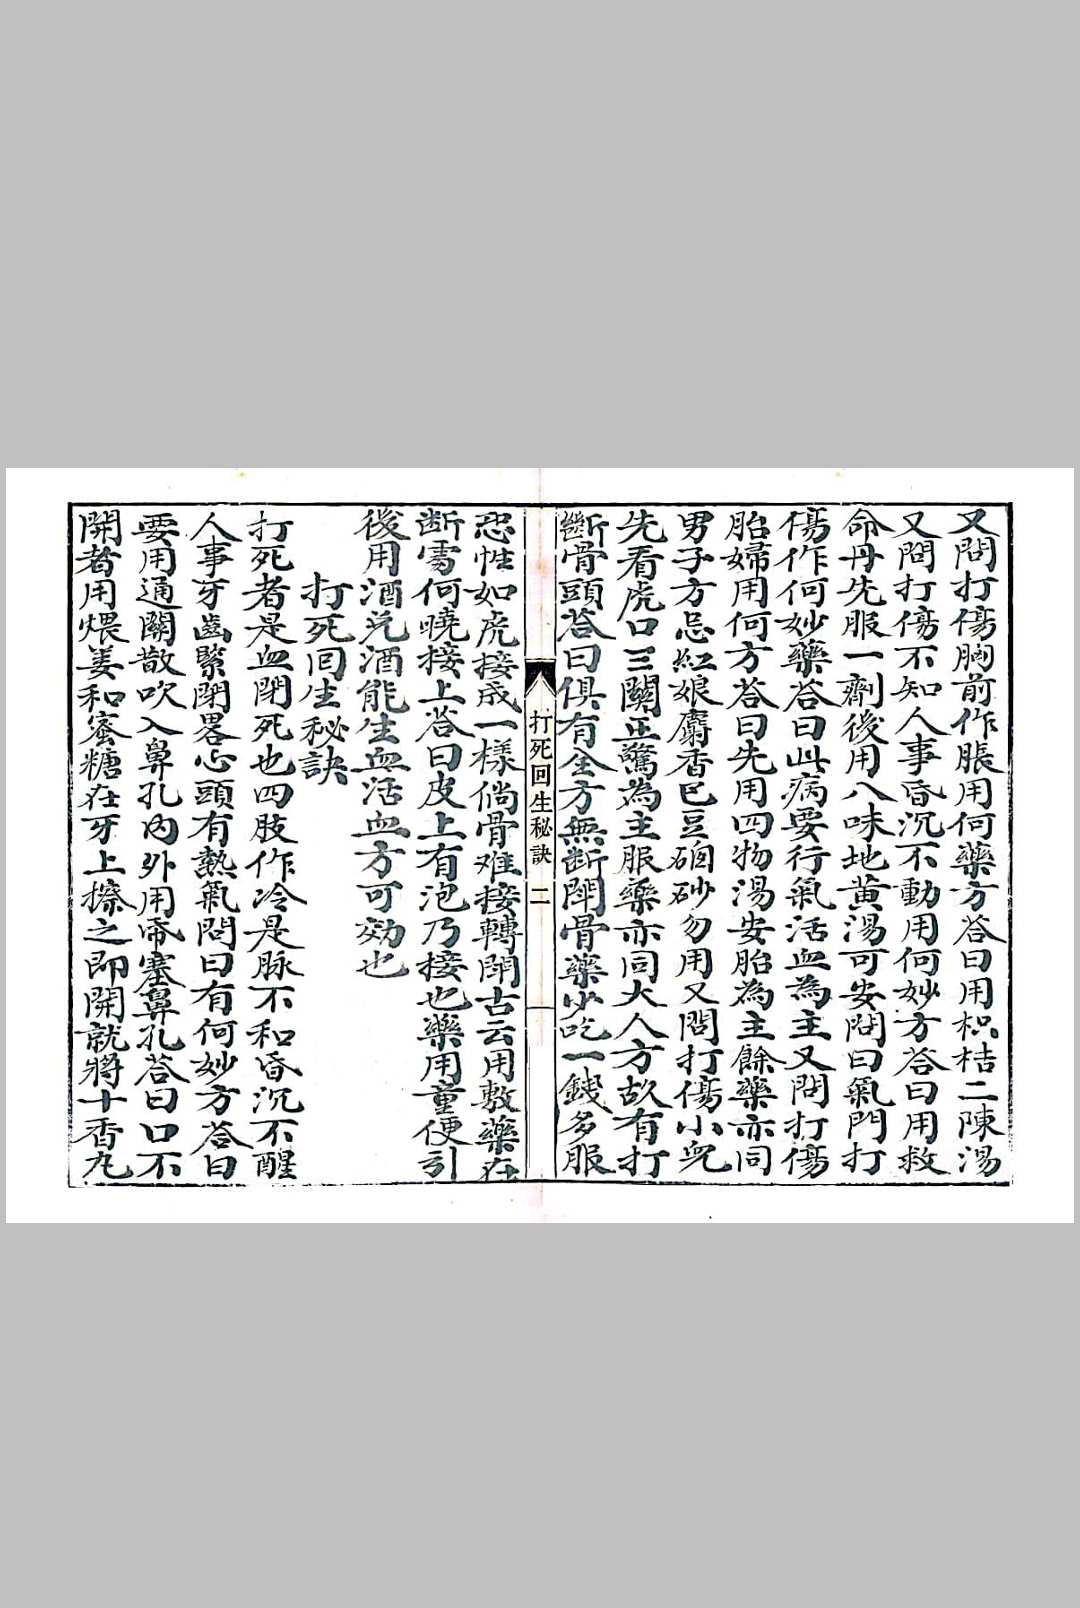 又問打傷胸前作脹用何藥方答曰用枳桔二陳湯
又問打傷不知人事昏沉不動用何妙方答曰用救
命丹先服一劑後用八味地黄湯可安問曰氣門打
傷作何妙藥答曰此病要行氣活血為主又問打傷
胎婦用何方答曰先用四物湯安胎為主餘藥亦同
男子方忌紅娘麝香巴豆硇砂勿用又問打傷小兒
先看虎口三關正驚為主服藥亦同大人方故有打
斷骨頭答曰俱有全方無斷闘骨藥少吃一錢多服
打死回生秘訣 二
恐性如虎接成一樣倘骨难接轉闘古云用敷藥在
断處何曉接上答曰皮上有泡乃接也藥用童便引
後用酒兑酒能生血活血方可効也
打死囘生秘訣
打死者是血閉死也四肢作冷是脉不和昏沉不醒
人事牙齒緊閉畧心頭有熱氣問曰有何妙方答曰
要用通關散吹入鼻孔内外用帋塞鼻孔答曰口不
開者用煨姜和蜜糖在牙上擦之即開就將十香丸